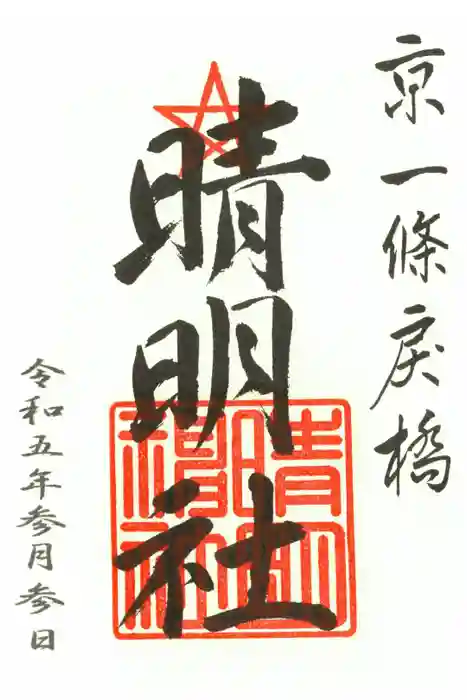 京一條戻橋
晴明社
晴明
神社
令和五年参月参日